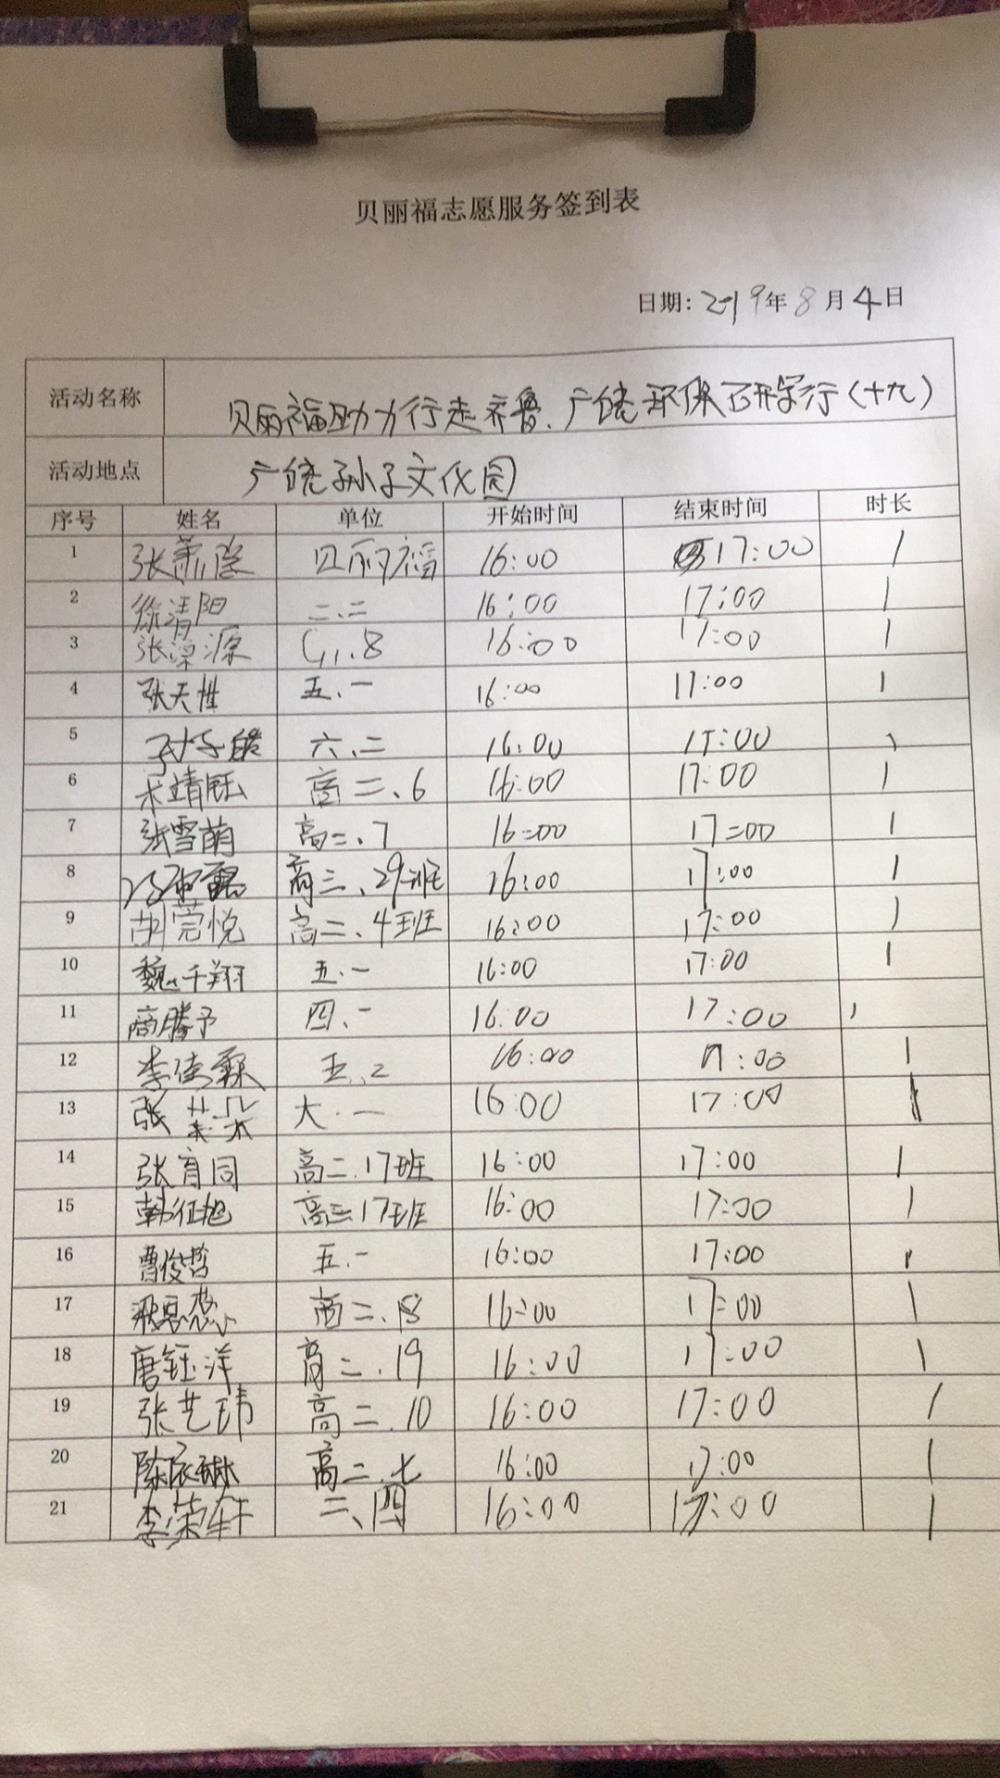 贝丽福志愿服务签到表
日期: 2019年8月4日
活动名称 贝丽福助力行走齐鲁、广饶环保研学行(十九)
活动地点 广饶孙子文化园
序号 姓名 单位 开始时间 结束时间 时长
1 张萧 贝丽福 16:00 17:00 1
2 徐清阳 二.二 16:00 17:00 1
3 张源 8 16:00 17:00 1
4 张天胜 五.一 16:00 17:00 1
5 孙子 六.二 16:00 17:00 1
6 宋靖钰 高二、6 16:00 17:00 1
7 张雪萌 高二、7 16=00 17=00 1
8 高三、29班 16:00 17:00 1
9 胡莞悦 高二、4班 16:00 17:00 1
10 魏千翔 五.一 16:00 17:00 1
11 商腾予 四、一 16:00 17:00 1
12 李佳霖 五.2 16:00 17:00 1
13 张 大.一 16:00 17:00 1
14 张育同 高二.17班 16:00 17:00 1
15 韩征旭 高三17班 16:00 17:00 1
16 曹俊哲 五.一 16:00 17:00 1
17 高二.18 16:00 17:00 1
18 唐钰洋 高二.19 16:00 17:00 1
19 张艺玮 高二.10 16:00 17:00 1
20 陈依琳 高二.七 16:00 17:00 1
21 李荣轩 二、四 16:00 17:00 1